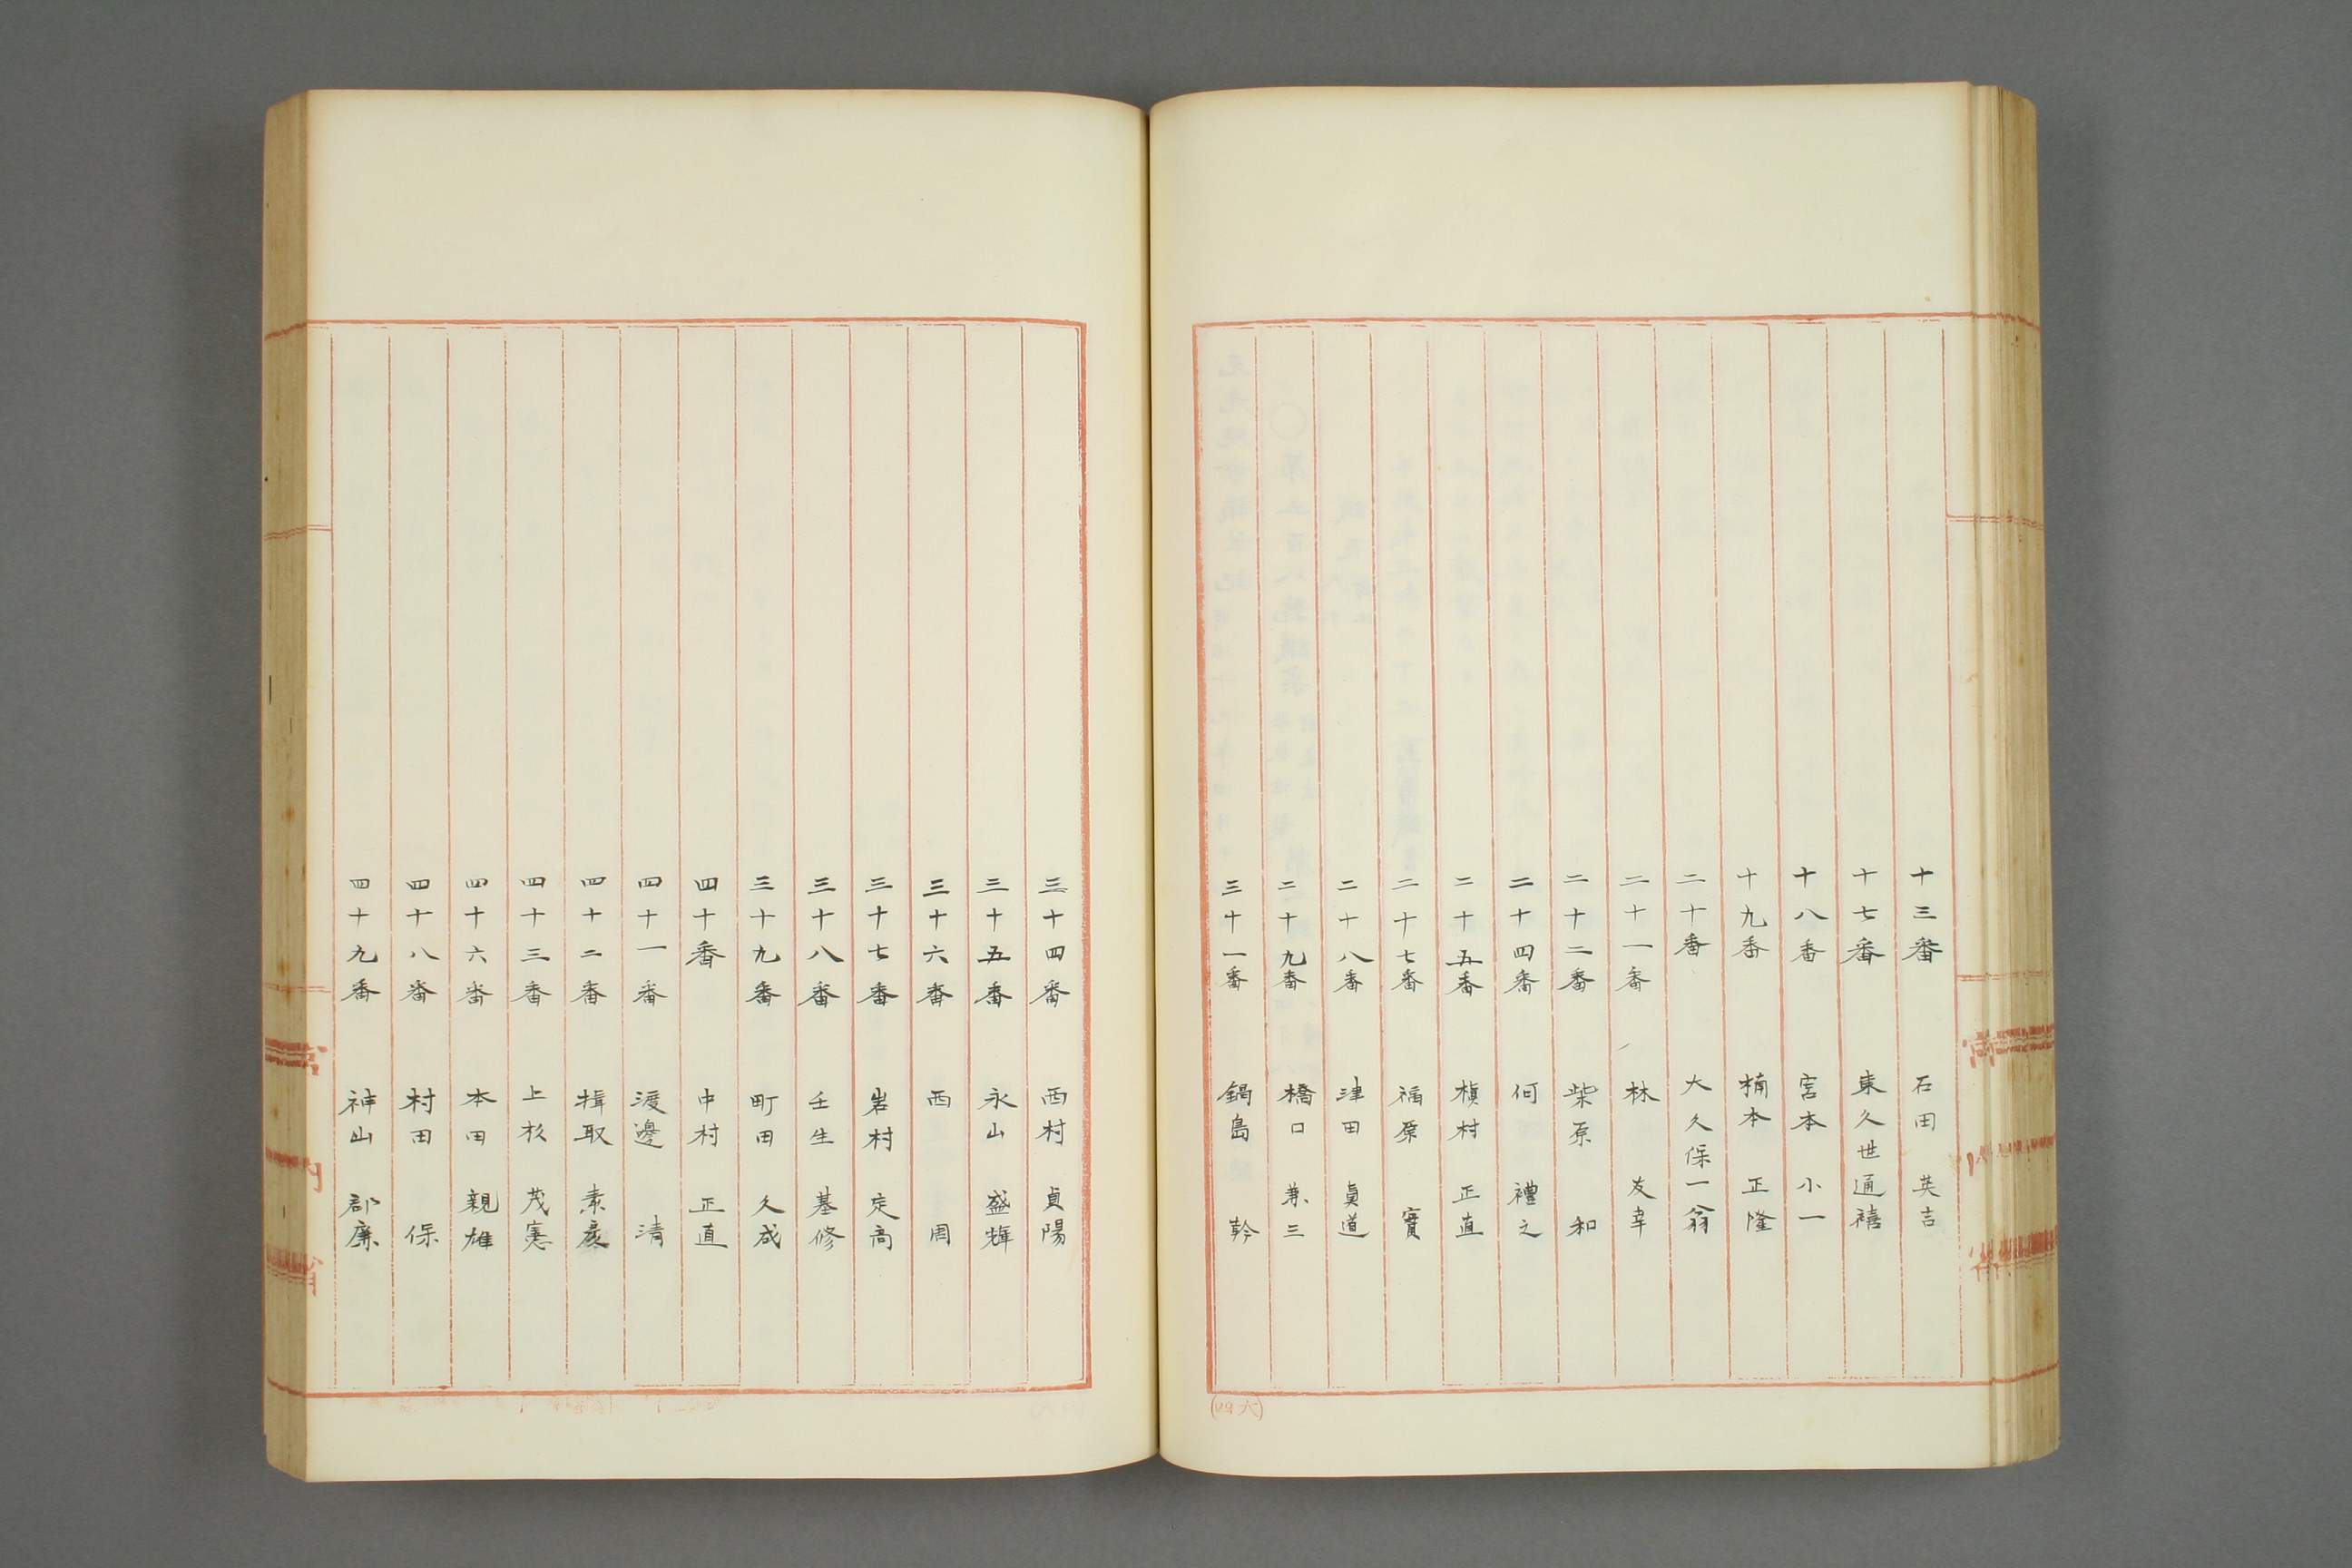 十三番 石田 英吉
十七番 東久世通禧
十八番 宮本 小一
十九番 楠本 正隆
二十番 大久保一翁
二十一番 林 友幸
二十二番 柴原 和
二十四番 何 禮之
二十五番 槇村 正直
二十七番 福原 實
二十八番 津田 眞道
二十九番 橋口 兼三
三十一番 鍋島 幹
三十四番 西村 貞陽
三十五番 永山 盛輝
三十六番 西 周
三十七番 岩村 定高
三十八番 壬生 基修
三十九番 町田 久成
四十番 中村 正直
四十一番 渡邊 清
四十二番 楫取 素彦
四十三番 上杉 茂憲
四十六番 本田 親雄
四十八番 村田 保
四十九番 神山 郡廉
宮内省